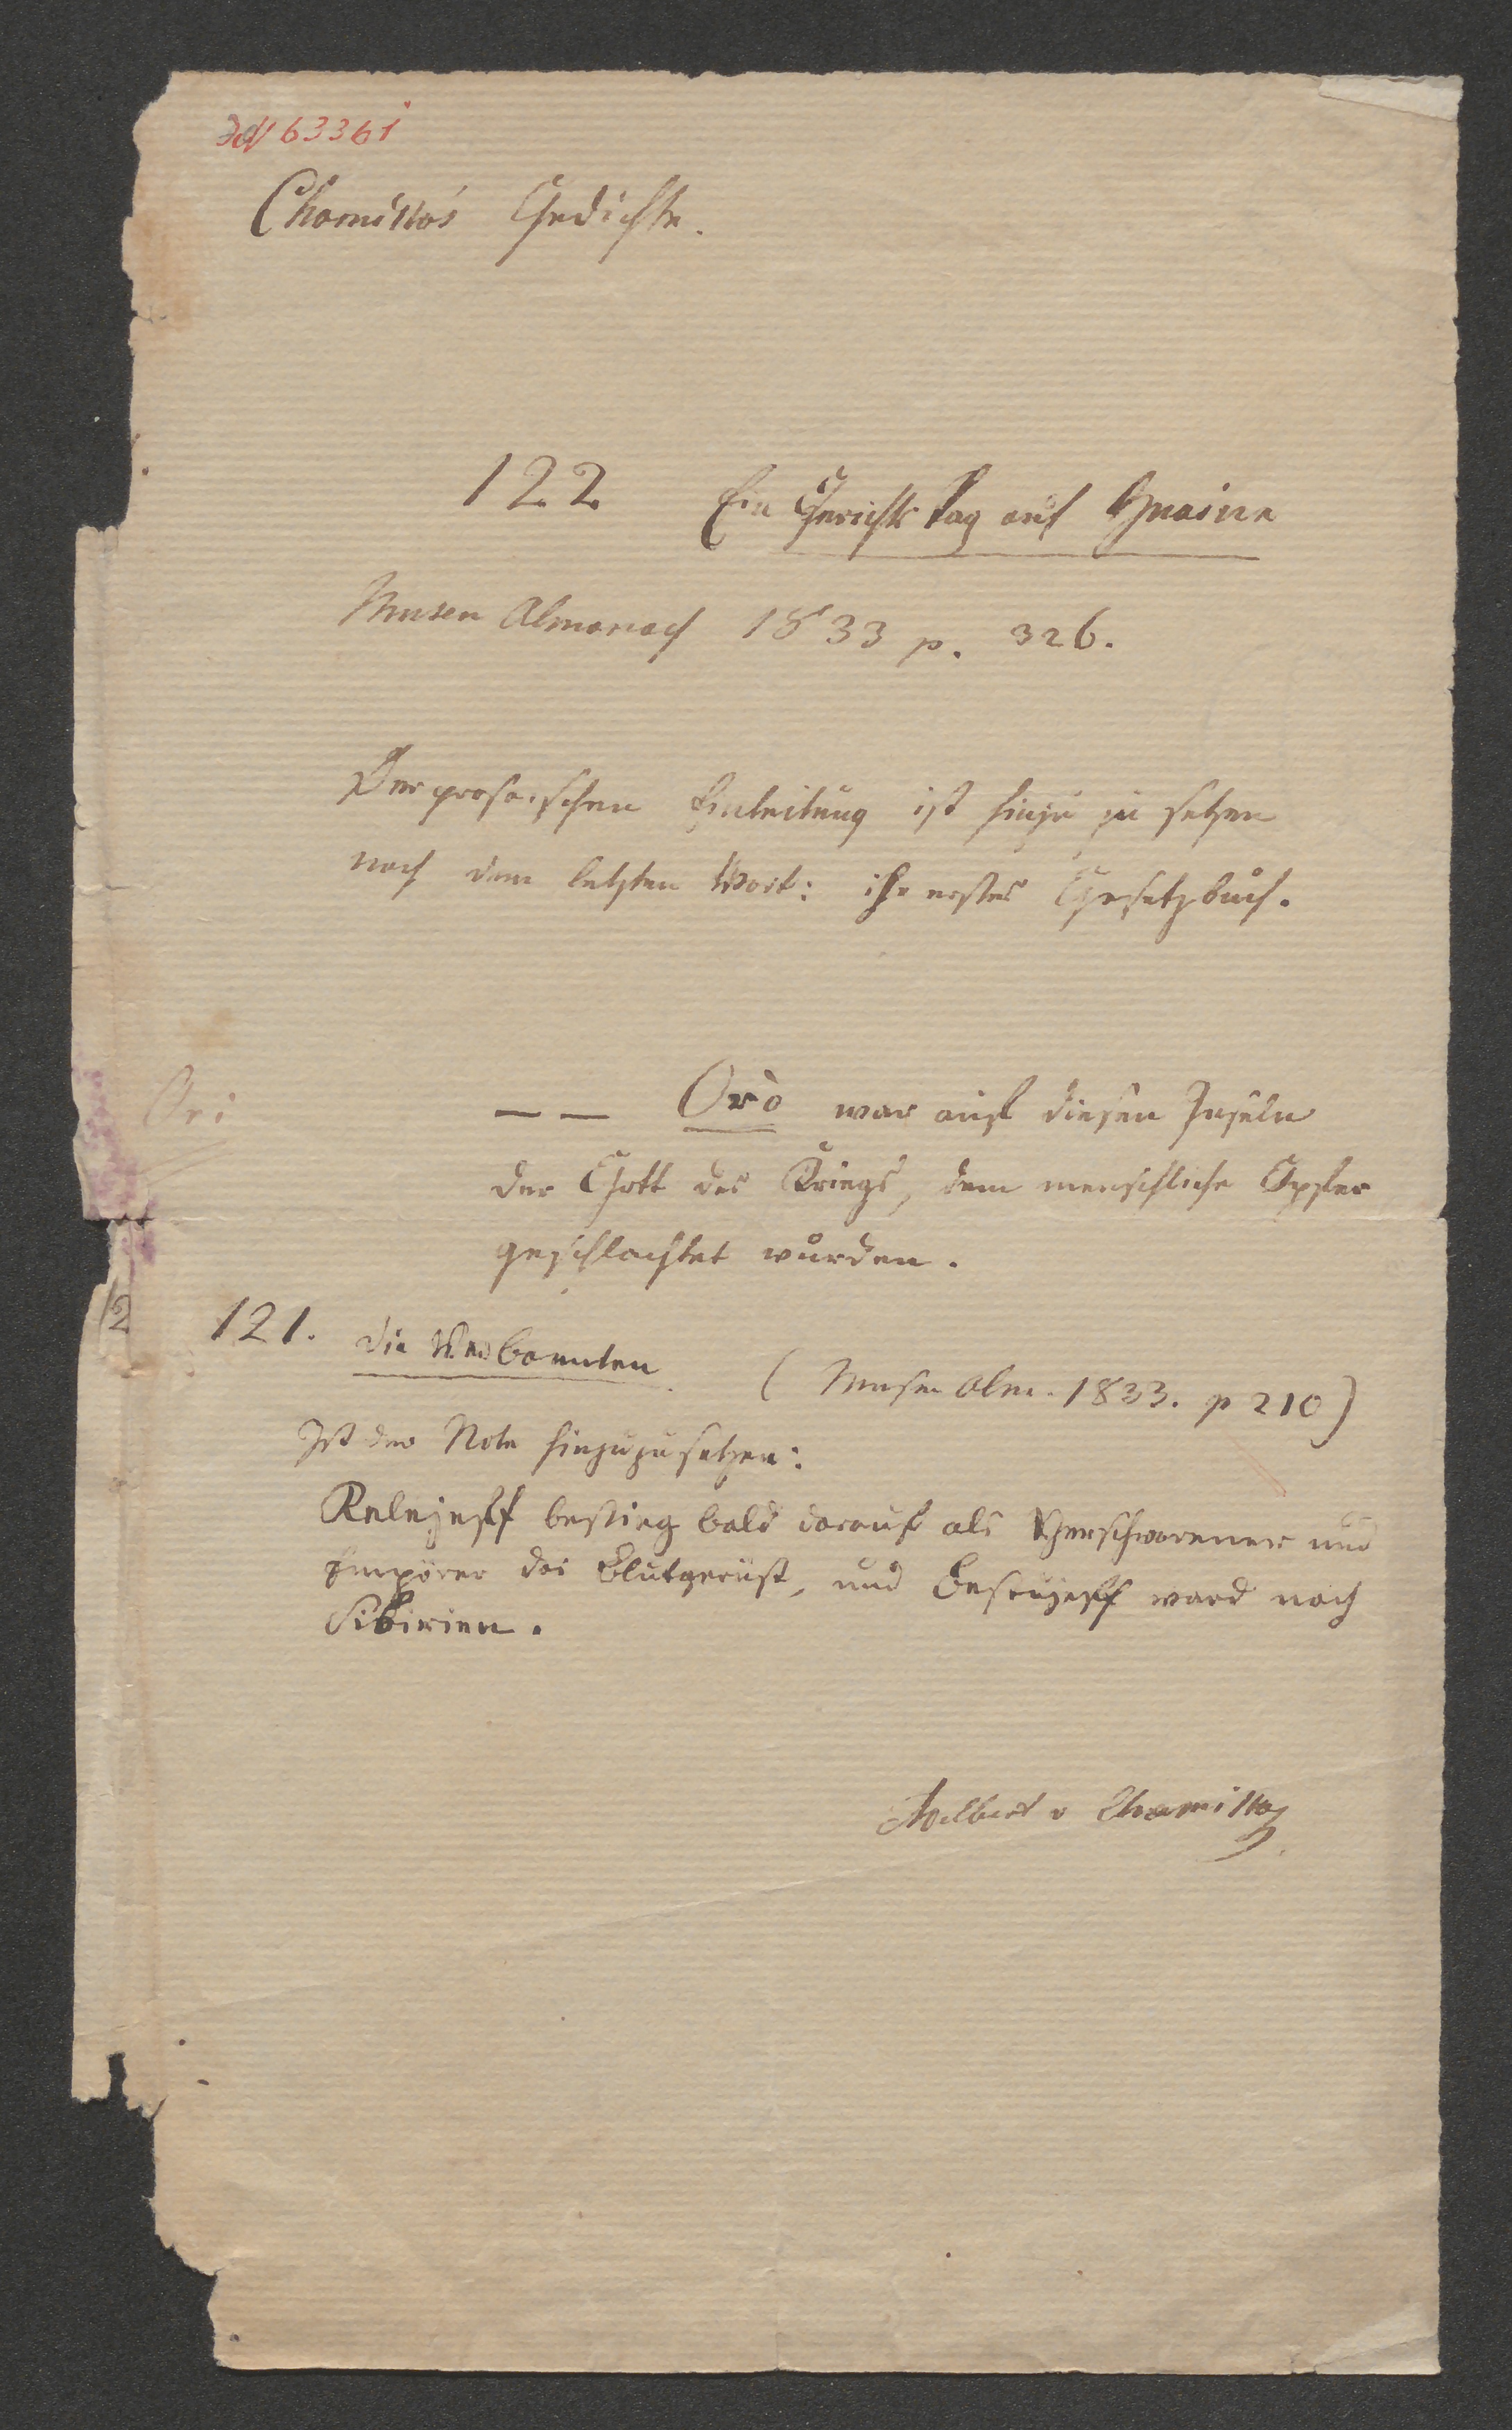 63361
Chamisso's Gedichte.
122 Ein Gerichts Tag auf Huaine
Musen Almanach 1833 p. 326.
Der prosaischen Einleitung ist hinzu zu setzen
nach dem letzten Wort: ihr erstes Gesetzbuch.
Ori
— — Oro war auf diesen Inseln
der Gott des Kriegs, dem menschliche Opfer
geschlachtet wurden.
12
121. die Verbannten (Musen Alm. 1833. p 210)
Ist der Note hinzuzusetzen:
Relejeff bestieg bald darauf als Verschworener und
Empörer das Blutgerüst, und Bestujeff ward nach
Sibirien.
Adelbert v Chamisso